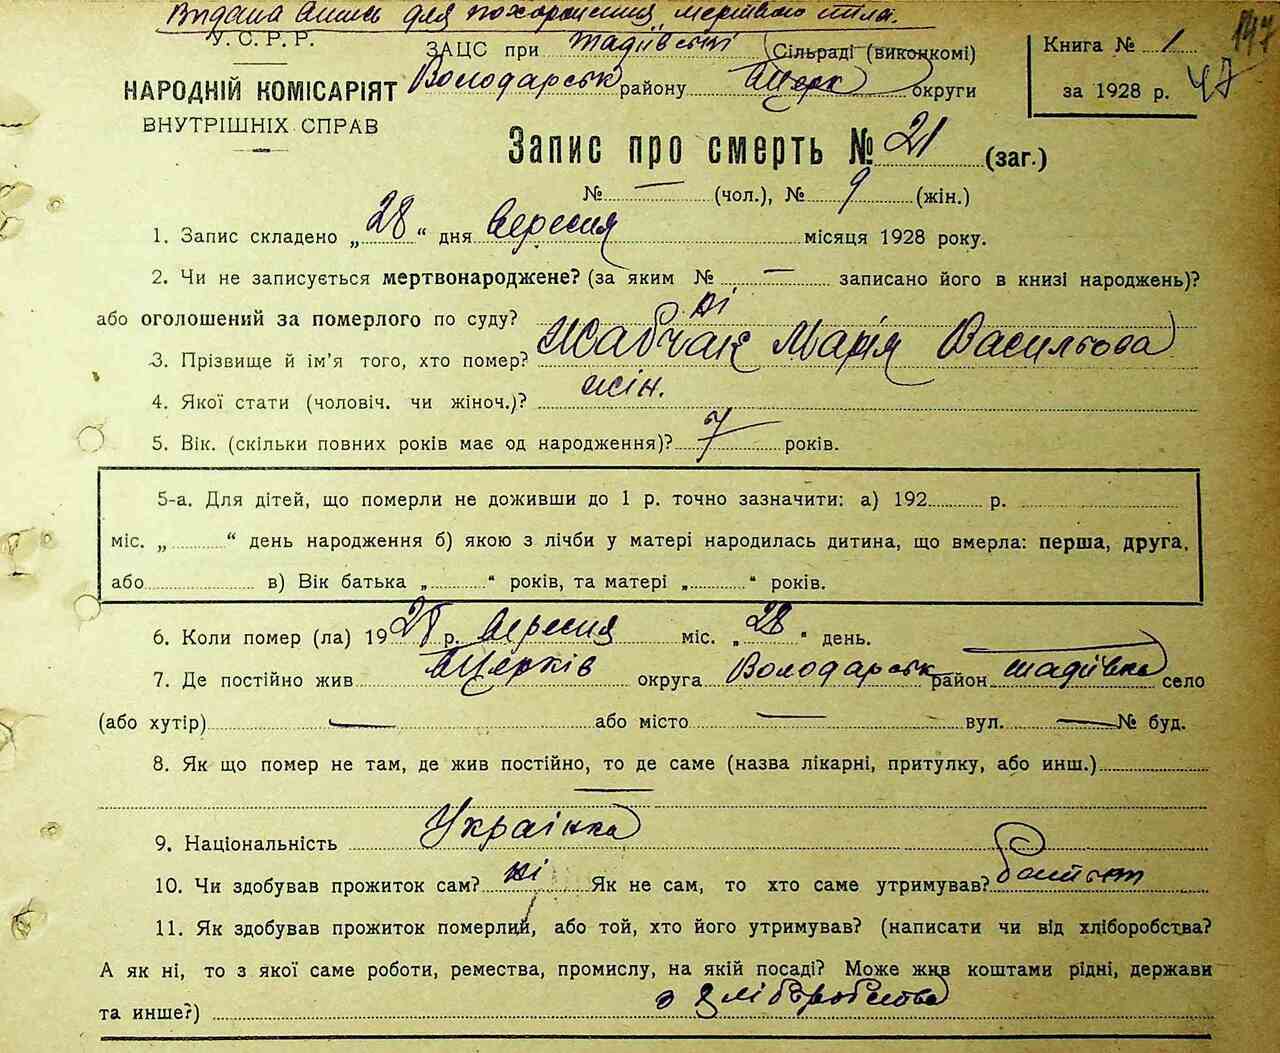 Видана випись для похоронення мертвого тіла.
У.С.Р.Р.
НАРОДНІЙ КОМІСАРІЯТ
ВНУТРІШНІХ СПРАВ
ЗАЦС при Тадіївські Сільраді (виконкомі)
Володарськ району Б Церк округи
Книга № 1
за 1928 р.
147
47
Запис про смерть № 21 (заг.)
№ — (чол.), № 9 (жін.)
1. Запис складено „28“ дня Вересня місяця 1928 року.
2. Чи не записується мертвонароджене? (за яким № — записано його в книзі народжень)?
або оголошений за померлого по суду? ні
3. Прізвище й ім'я того, хто помер? Жабчак Марія Васильова
4. Якої стати (чоловіч. чи жіноч.)? жін.
5. Вік. (скільки повних років має од народження)? 7 років.
5-а. Для дітей, що померли не доживши до 1 р. точно зазначити: а) 192 р.
міс. „ “ день народження б) якою з лічби у матері народилась дитина, що вмерла: перша, друга,
або в) Вік батька „ “ років, та матері „ “ років.
6. Коли помер (ла) 1928 р. Вересня міс. „28“ день.
7. Де постійно жив БЦерків округа Володарськ район Тадіївка село
(або хутір) — або місто — вул. — № буд.
8. Як що помер не там, де жив постійно, то де саме (назва лікарні, притулку, або инш.)
—
9. Національність Українка
10. Чи здобував прожиток сам? ні Як не сам, то хто саме утримував? батьки
11. Як здобував прожиток померлий, або той, хто його утримував? (написати чи від хліборобства?
А як ні, то з якої саме роботи, ремества, промислу, на якій посаді? Може жив коштами рідні, держави
та инше?) з хліборобства